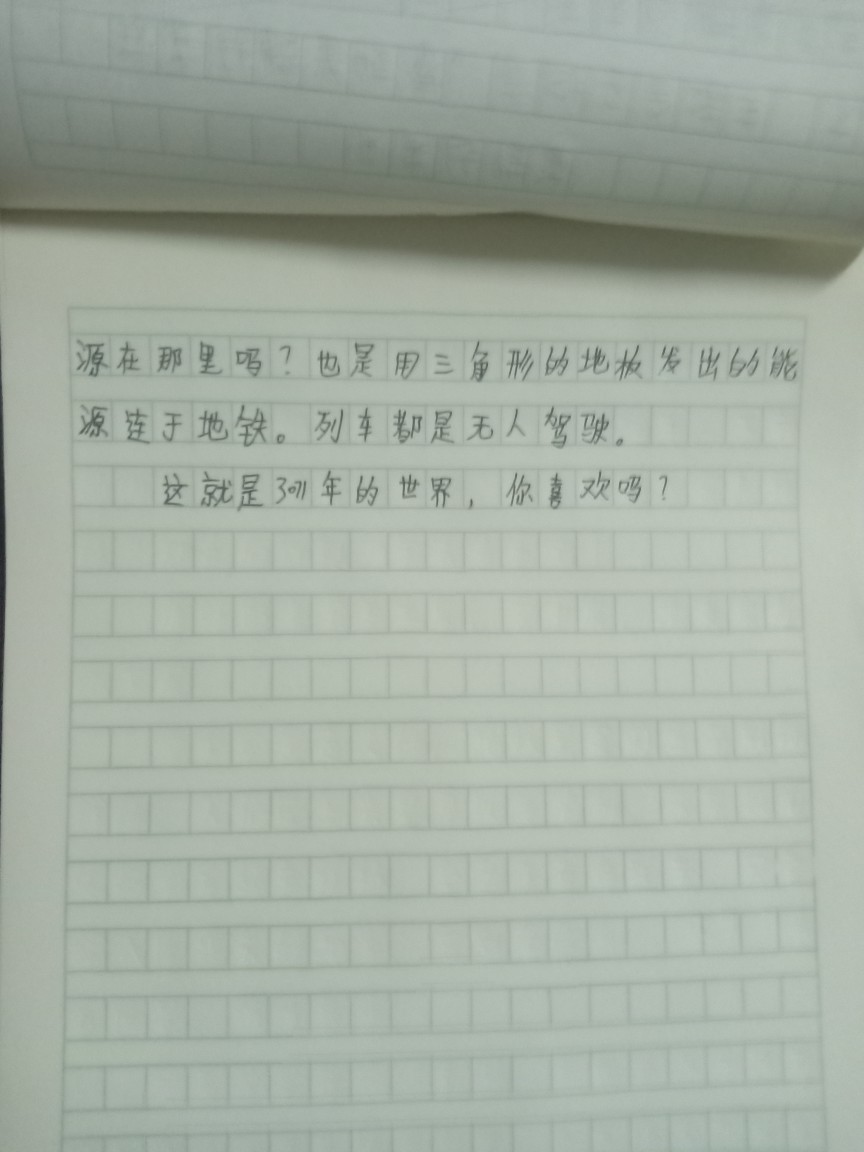 源在那里吗？也是用三角形的地板发出的能
源连于地铁。列车都是无人驾驶。
这就是3011年的世界，你喜欢吗？